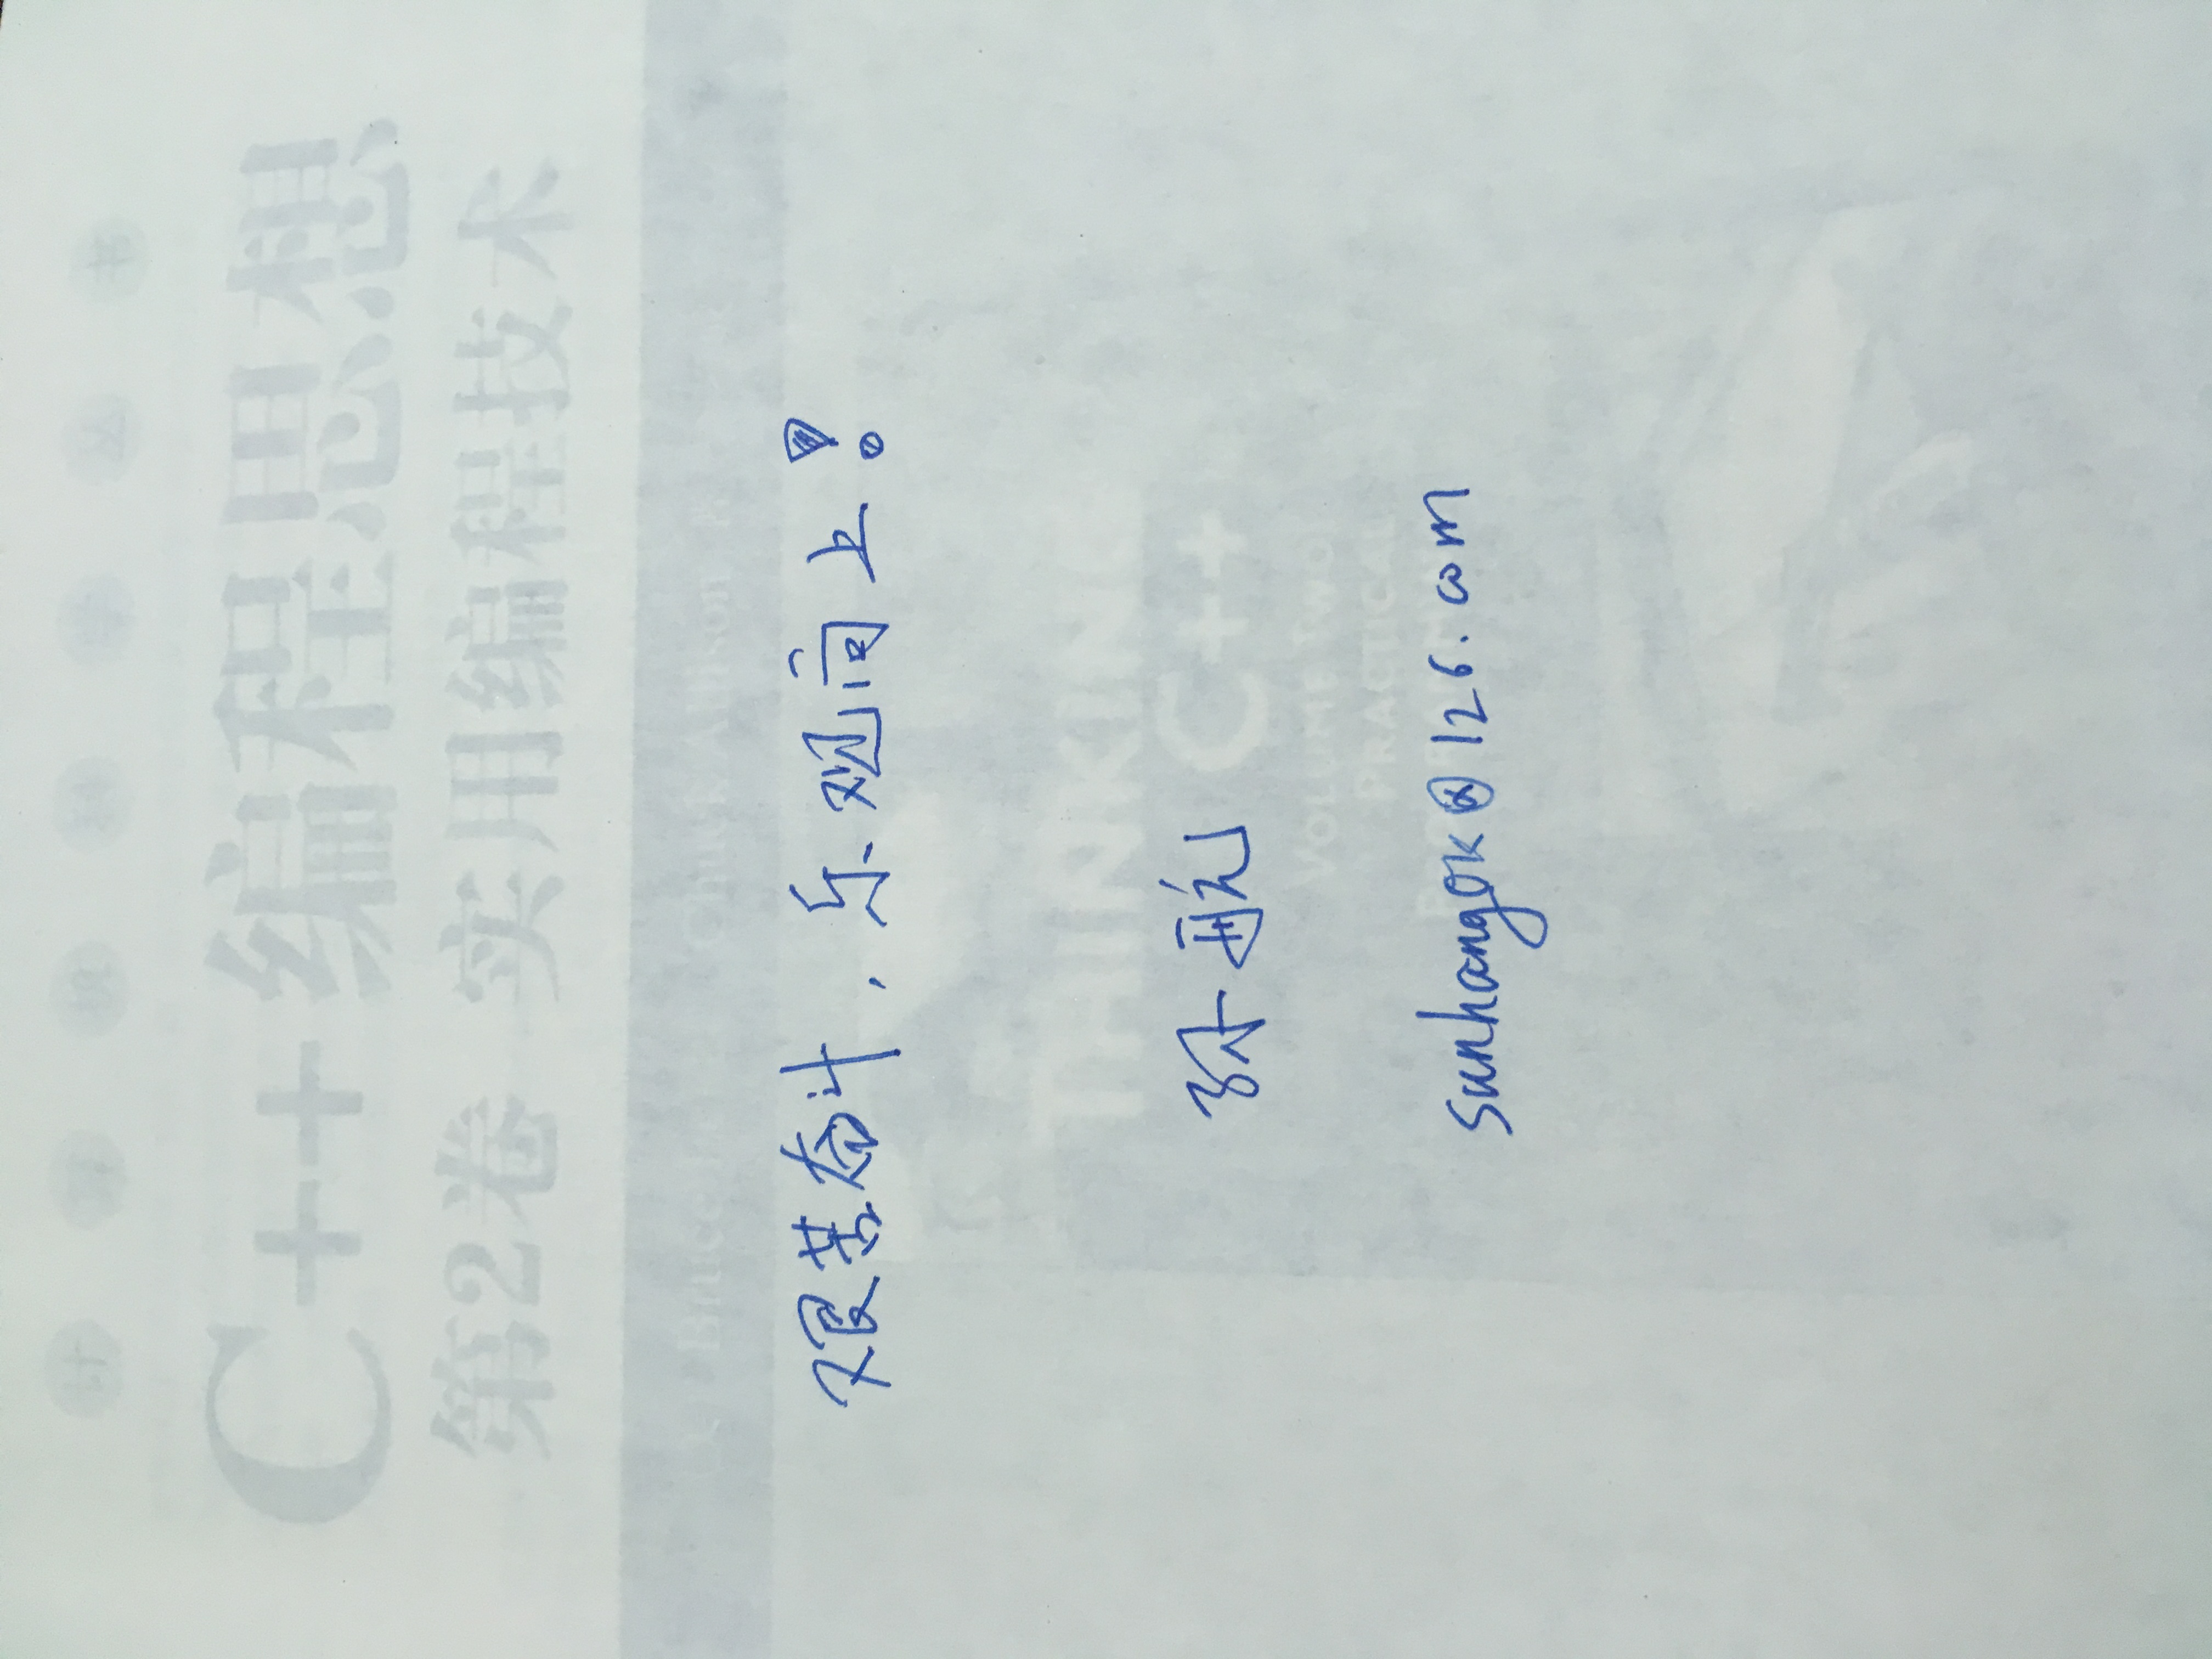 计算机科学丛书
C++编程思想
第2卷 实用编程技术
Bruce Eckel Chuck Allison
艰苦奋斗，乐观向上！
THINKING
孙航 C++
VOLUME TWO:
PRACTICAL
PROGRAMMING
sunhangok@126.com